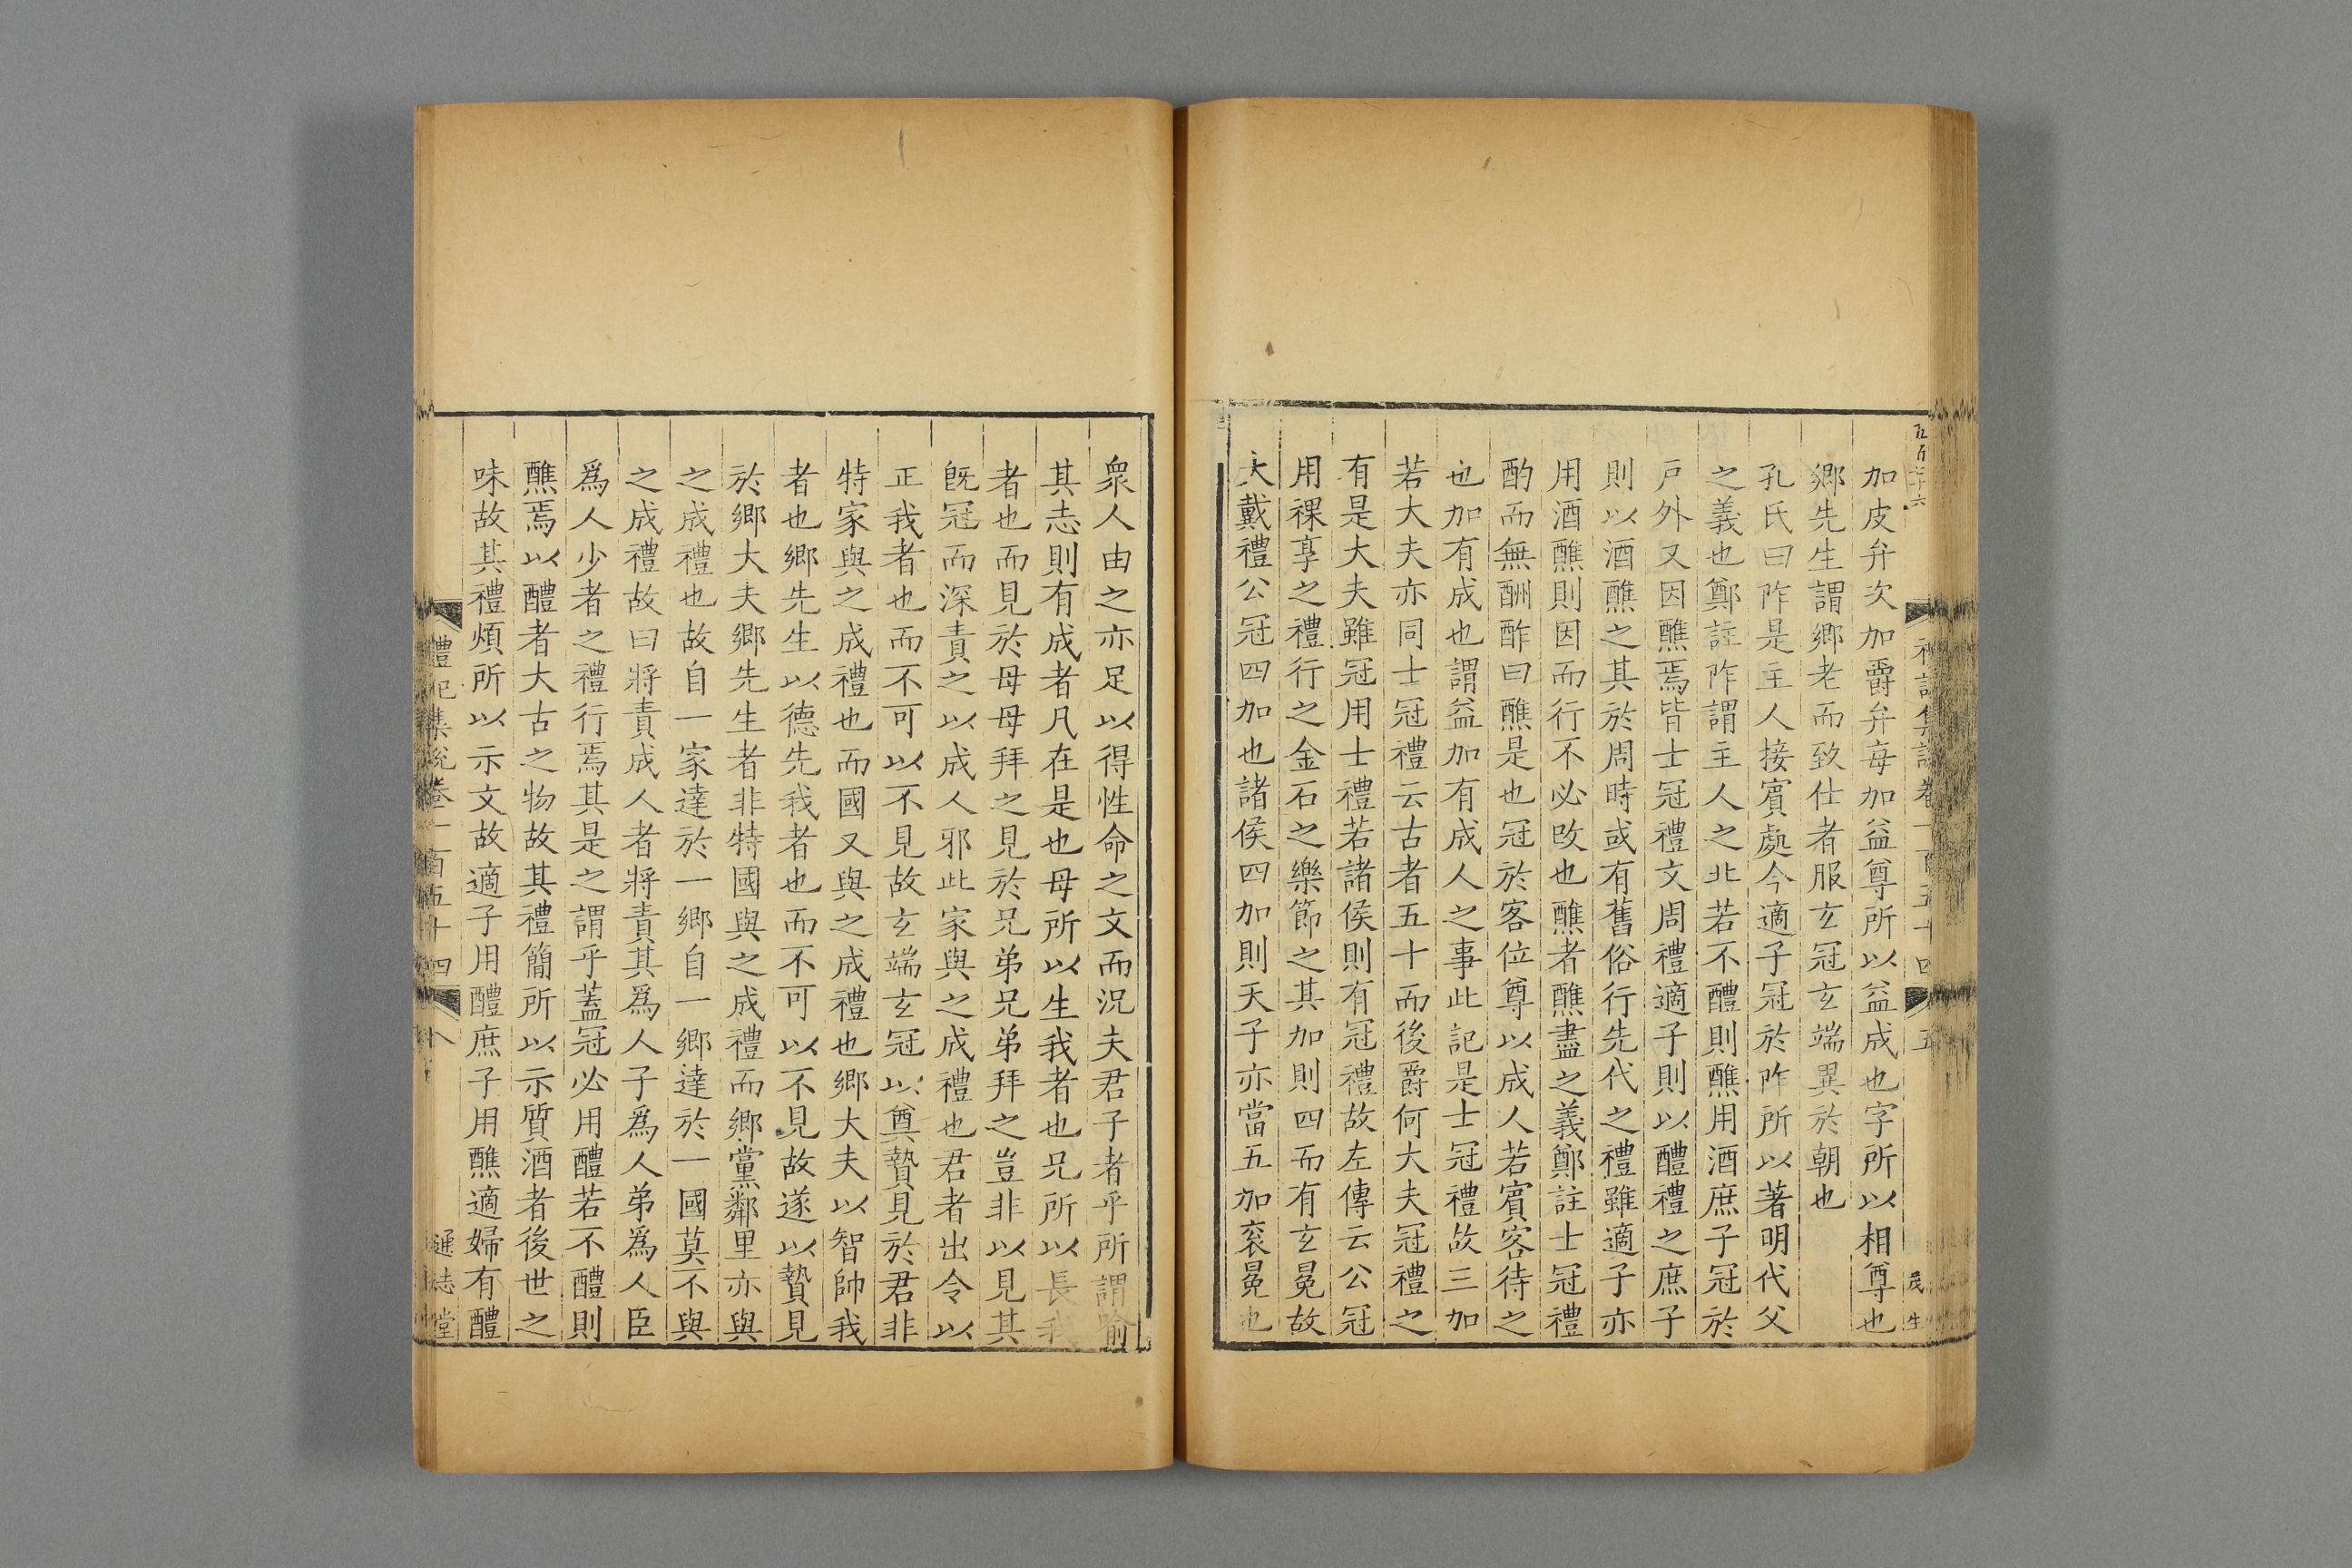 五百二十六
禮記集說卷一百五十四
五
茂生
加皮弁次加爵弁每加益尊所以益成也字所以相尊也
鄉先生謂鄉老而致仕者服玄冠玄端異於朝也
孔氏曰阼是主人接賓處今適子冠於阼所以著明代父
之義也鄭註阼謂主人之北若不醴則醮用酒庶子冠於
戶外又因醮焉皆士冠禮文周禮適子則以醴禮之庶子
則以酒醮之其於周時或有舊俗行先代之禮雖適子亦
用酒醮則因而行不必改也醮者醮盡之義鄭註士冠禮
酌而無酬酢曰醮是也冠於客位尊以成人若賓客待之
也加有成也謂益加有成人之事此記是士冠禮故三加
若大夫亦同士冠禮云古者五十而後爵何大夫冠禮之
有是大夫雖冠用士禮若諸侯則有冠禮故左傳云公冠
用祼享之禮行之金石之樂節之其加則四而有玄冕故
大戴禮公冠四加也諸侯四加則天子亦當五加衮冕也
衆人由之亦足以得性命之文而況夫君子者乎所謂喻
其志則有成者凡在是也母所以生我者也兄所以長我
者也而見於母母拜之見於兄弟兄弟拜之豈非以見其
旣冠而深責之以成人邪此家與之成禮也君者出令以
正我者也而不可以不見故玄端玄冠以奠贄見於君非
特家與之成禮也而國又與之成禮也鄉大夫以智帥我
者也鄉先生以德先我者也而不可以不見故遂以贄見
於鄉大夫鄉先生者非特國與之成禮而鄉黨鄰里亦與
之成禮也故自一家達於一鄉自一鄉達於一國莫不與
之成禮故曰將責成人者將責其爲人子爲人弟爲人臣
爲人少者之禮行焉其是之謂乎蓋冠必用醴若不醴則
醮焉以醴者大古之物故其禮簡所以示質酒者後世之
味故其禮煩所以示文故適子用醴庶子用醮適婦有醴
禮記集說卷一百五十四
八
通志堂